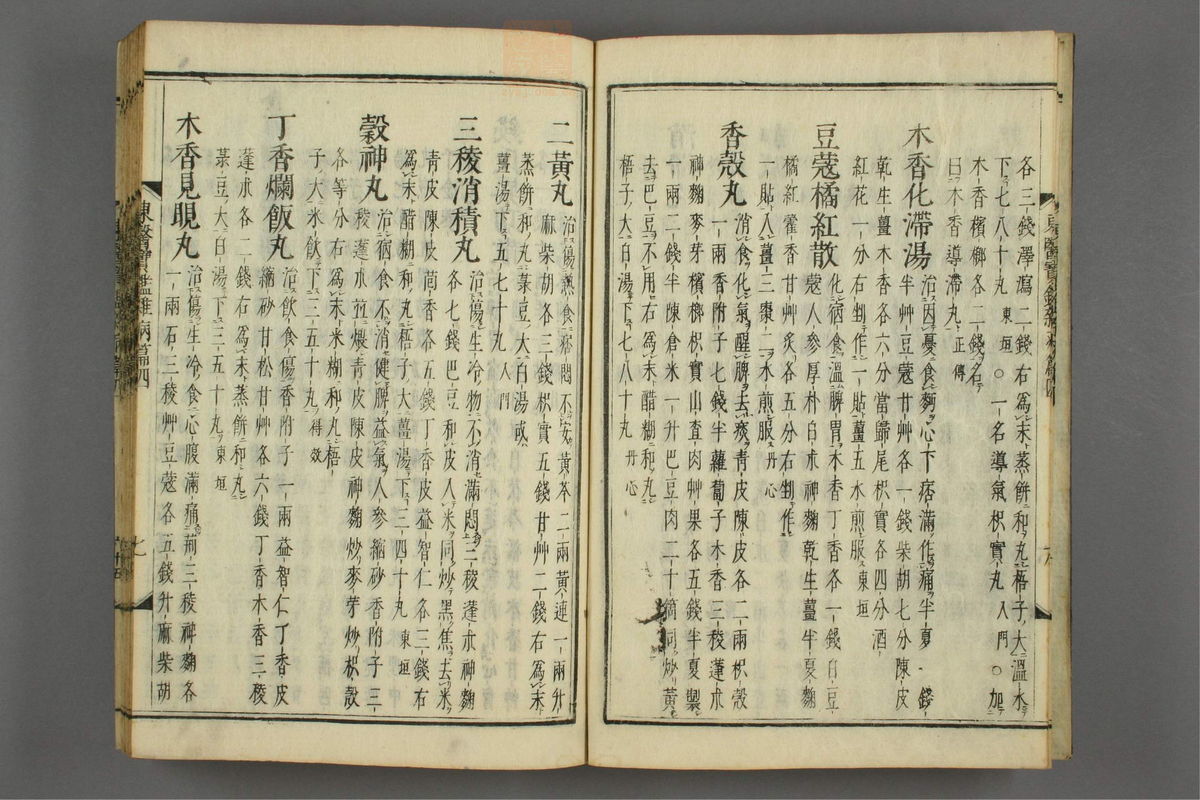 各三錢澤瀉二錢右爲末蒸餅和丸梧子大溫水
下七八十丸東垣○一名導氣枳實丸入門○加
木香檳榔各二錢名
曰木香導滯丸正傳
木香化滯湯治因憂食麪心下痞滿作痛半夏一錢
半艸豆蔻甘艸各一錢柴胡七分陳皮
乾生薑木香各六分當歸尾枳實各四分酒
紅花一分右剉作一貼薑五水煎服東垣
豆蔻橘紅散化痰食溫脾胃木香丁香各一錢白豆
蔻人參厚朴白朮神麴乾生薑半夏麴
橘紅藿香甘艸炙各五分右剉作
一貼入薑三棗二水煎服丹心
香殼丸消食化氣醒脾去痰青皮陳皮各二兩枳殼
一兩香附子七錢半蘿蔔子木香三稜蓬朮
神麴麥芽檳榔枳實山査肉艸果各五錢半夏製
一兩二錢半陳倉米一升巴豆肉二十箇同炒黃
去巴豆不用右爲末醋糊和丸
梧子大白湯下七八十丸丹心
二黃丸治傷熱食痞悶不安黃芩二兩黃連一兩升
麻柴胡各三錢枳實五錢甘艸二錢右爲末
蒸餅和丸菉豆大白湯或
薑湯下五七十丸入門
三稜消積丸治傷生冷物不消滿悶三稜蓬朮神麴
各七錢巴豆和皮入米同炒黑焦去米
青皮陳皮茴香各五錢丁香皮益智仁各三錢右
爲末醋糊和丸梧子大薑湯下三四十丸東垣
穀神丸治宿食不消健脾益氣人參縮砂香附子三
稜蓬朮並煨青皮陳皮神麴炒麥芽炒枳殼
各等分右爲末米糊和丸梧
子大米飲下三五十丸得效
丁香爛飯丸治飲食傷香附子一兩益智仁丁香皮
縮砂甘松甘艸各六錢丁香木香三稜
蓬朮各二錢右爲末蒸餅和丸
菉豆大白湯下三五十丸東垣
木香見睍丸治傷生冷食心腹滿痛荊三稜神麴各
一兩石三稜艸豆蔻各五錢升麻柴胡
東醫寶鑑雜病篇四